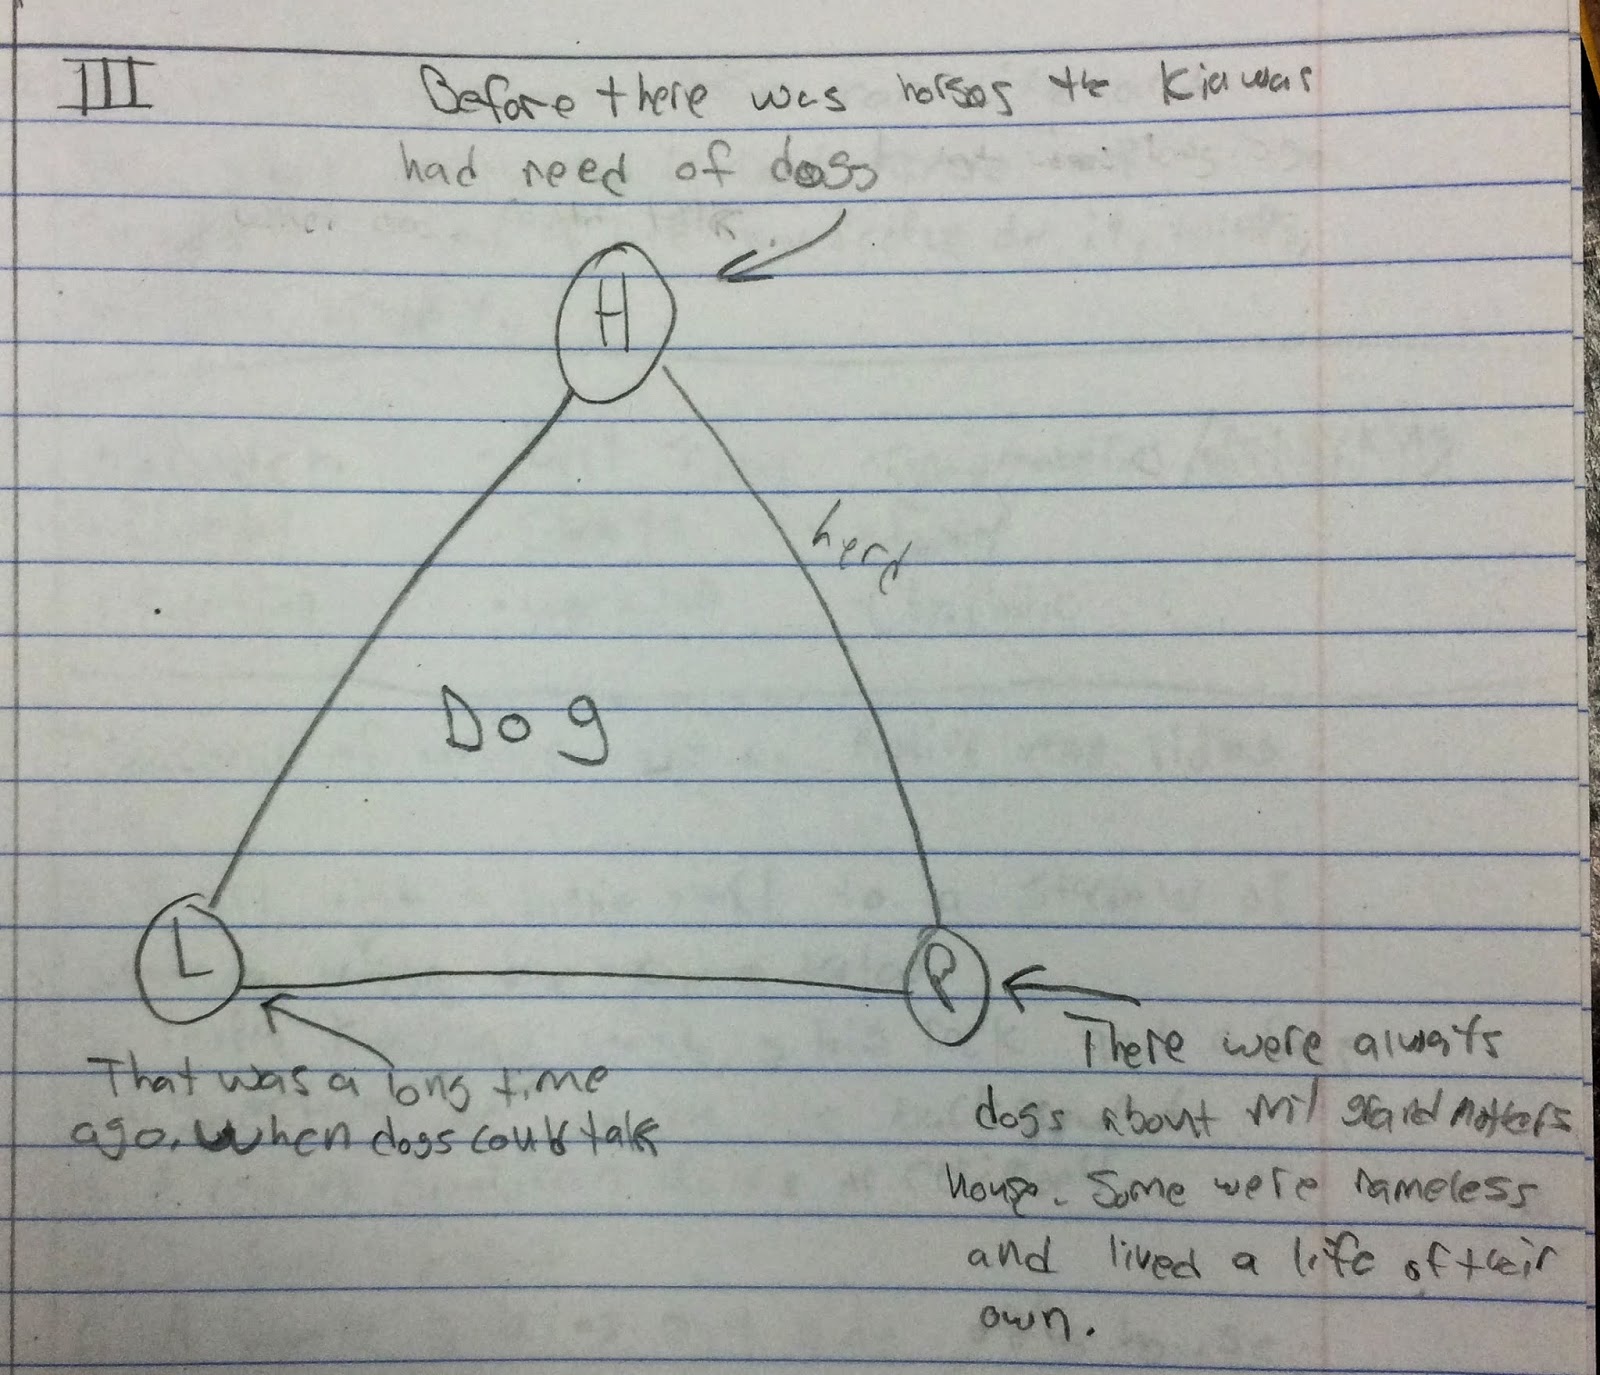 III
Before there was horses the Kiawas
had need of dogs
H
herd
Dog
L
P
That was a long time
ago. When dogs could talk
There were always
dogs about my grandmothers
house. Some were nameless
and lived a life of their
own.